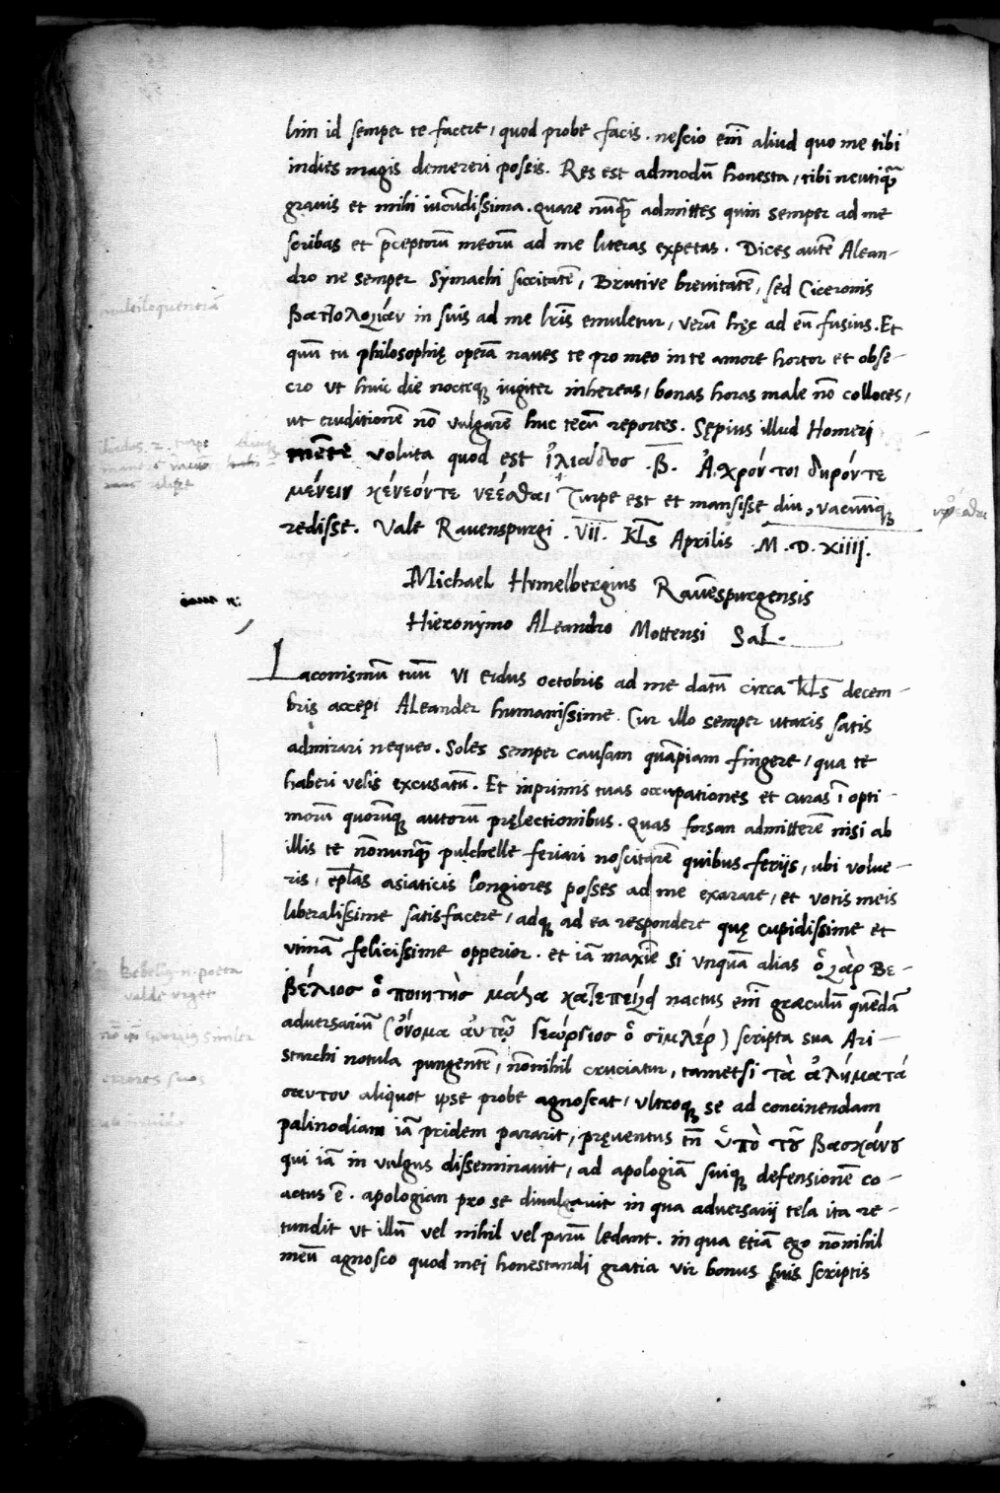 lim id semper te facere, quod probe facis. nescio em̄ aliud quo me tibi
indies magis demereri possis. Res est admodū honesta, tibi neutiq̄
grauis et mihi iucūdissima. Quare nūq̄ admittes quin semper ad me
scribas et p̄ceptorū meorū ad me literas expetas. Dices autē Alean-
dro ne semper Symachi siccitatē, Brutive breuitatē, sed Ciceronis
βαττολογίαν in suis ad me lr̄is emuletur, verū hęc ad eū fusius. Et
quū tu philosophię operā naues te pro meo in te amore hortor et obse-
cro ut huic die nocteq; iugiter inhereas, bonas horas male nō colloces,
ut eruditionē nō vulgarē huc tecū reportes. Sępius illud Homeri
mēte voluta quod est ἰλιάδος .β. Ἀιχρόν τοι δηρόν τε
μένειν κενεόν τε νέεσθαι Turpe est et mansisse diu, vacuūq;
redisse. Vale Rauenspurgi .VII. Kl̄s Aprilis .M.D.xiiij.
Michael Hvmelbergius Rauēspurgensis
Hieronymo ALeandro Mottensi SaL.
Laconismū tuū VI eidus octobris ad me datū circa kl̄s decem-
bris accepi ALeander humanissime. Cur illo semper utaris satis
admirari nequeo. Soles semper causam quāpiam fingere, qua te
haberi velis excusatū. Et inprimis tuas occupationes et curas ī opti-
morū quorūq; autorū pręlectionibus. Quas forsan admitterē nisi ab
illis te nōnunq̄ pulchelle feriari noscitarē quibus ferijs, ubi volue-
ris, ep̄las asiaticis longiores posses ad me exarare, et votis meis
liberalissime satisfacere, adq; ad ea respondere quę cupidissime et
utinā felicissime opperior. et iā maxīe si vnquā alias ὁ γὰρ Βε-
βέλιος ὁ ποιητὴς μάλα χαλεπαίνει nactus em̄ graeculū quēdā
adversariū (ὄνομα ἀυτῷ Γεώργιος ὁ σιμλέρ) scripta sua Ari-
starchi notula pungentē, nōnihil cruciatur, tametsi τὰ ἀλήματά
σαυτου aliquot ipse probe agnoscat, ultroq; se ad concinendam
palinodiam iā pridem pararit, pręuentus tn̄ ὑπὸ τȣ͂ βασκάνȣ
qui iā in vulgus disseminauit, ad apologiā suiq; defensionē co-
actus ē. apologian pro se diuulgauit in qua adversarij tela ita re-
tundit ut illū vel nihil vel parū ledant. in qua etiā ego nōnihil
meū agnosco quod mei honestandi gratia vir bonus suis scriptis